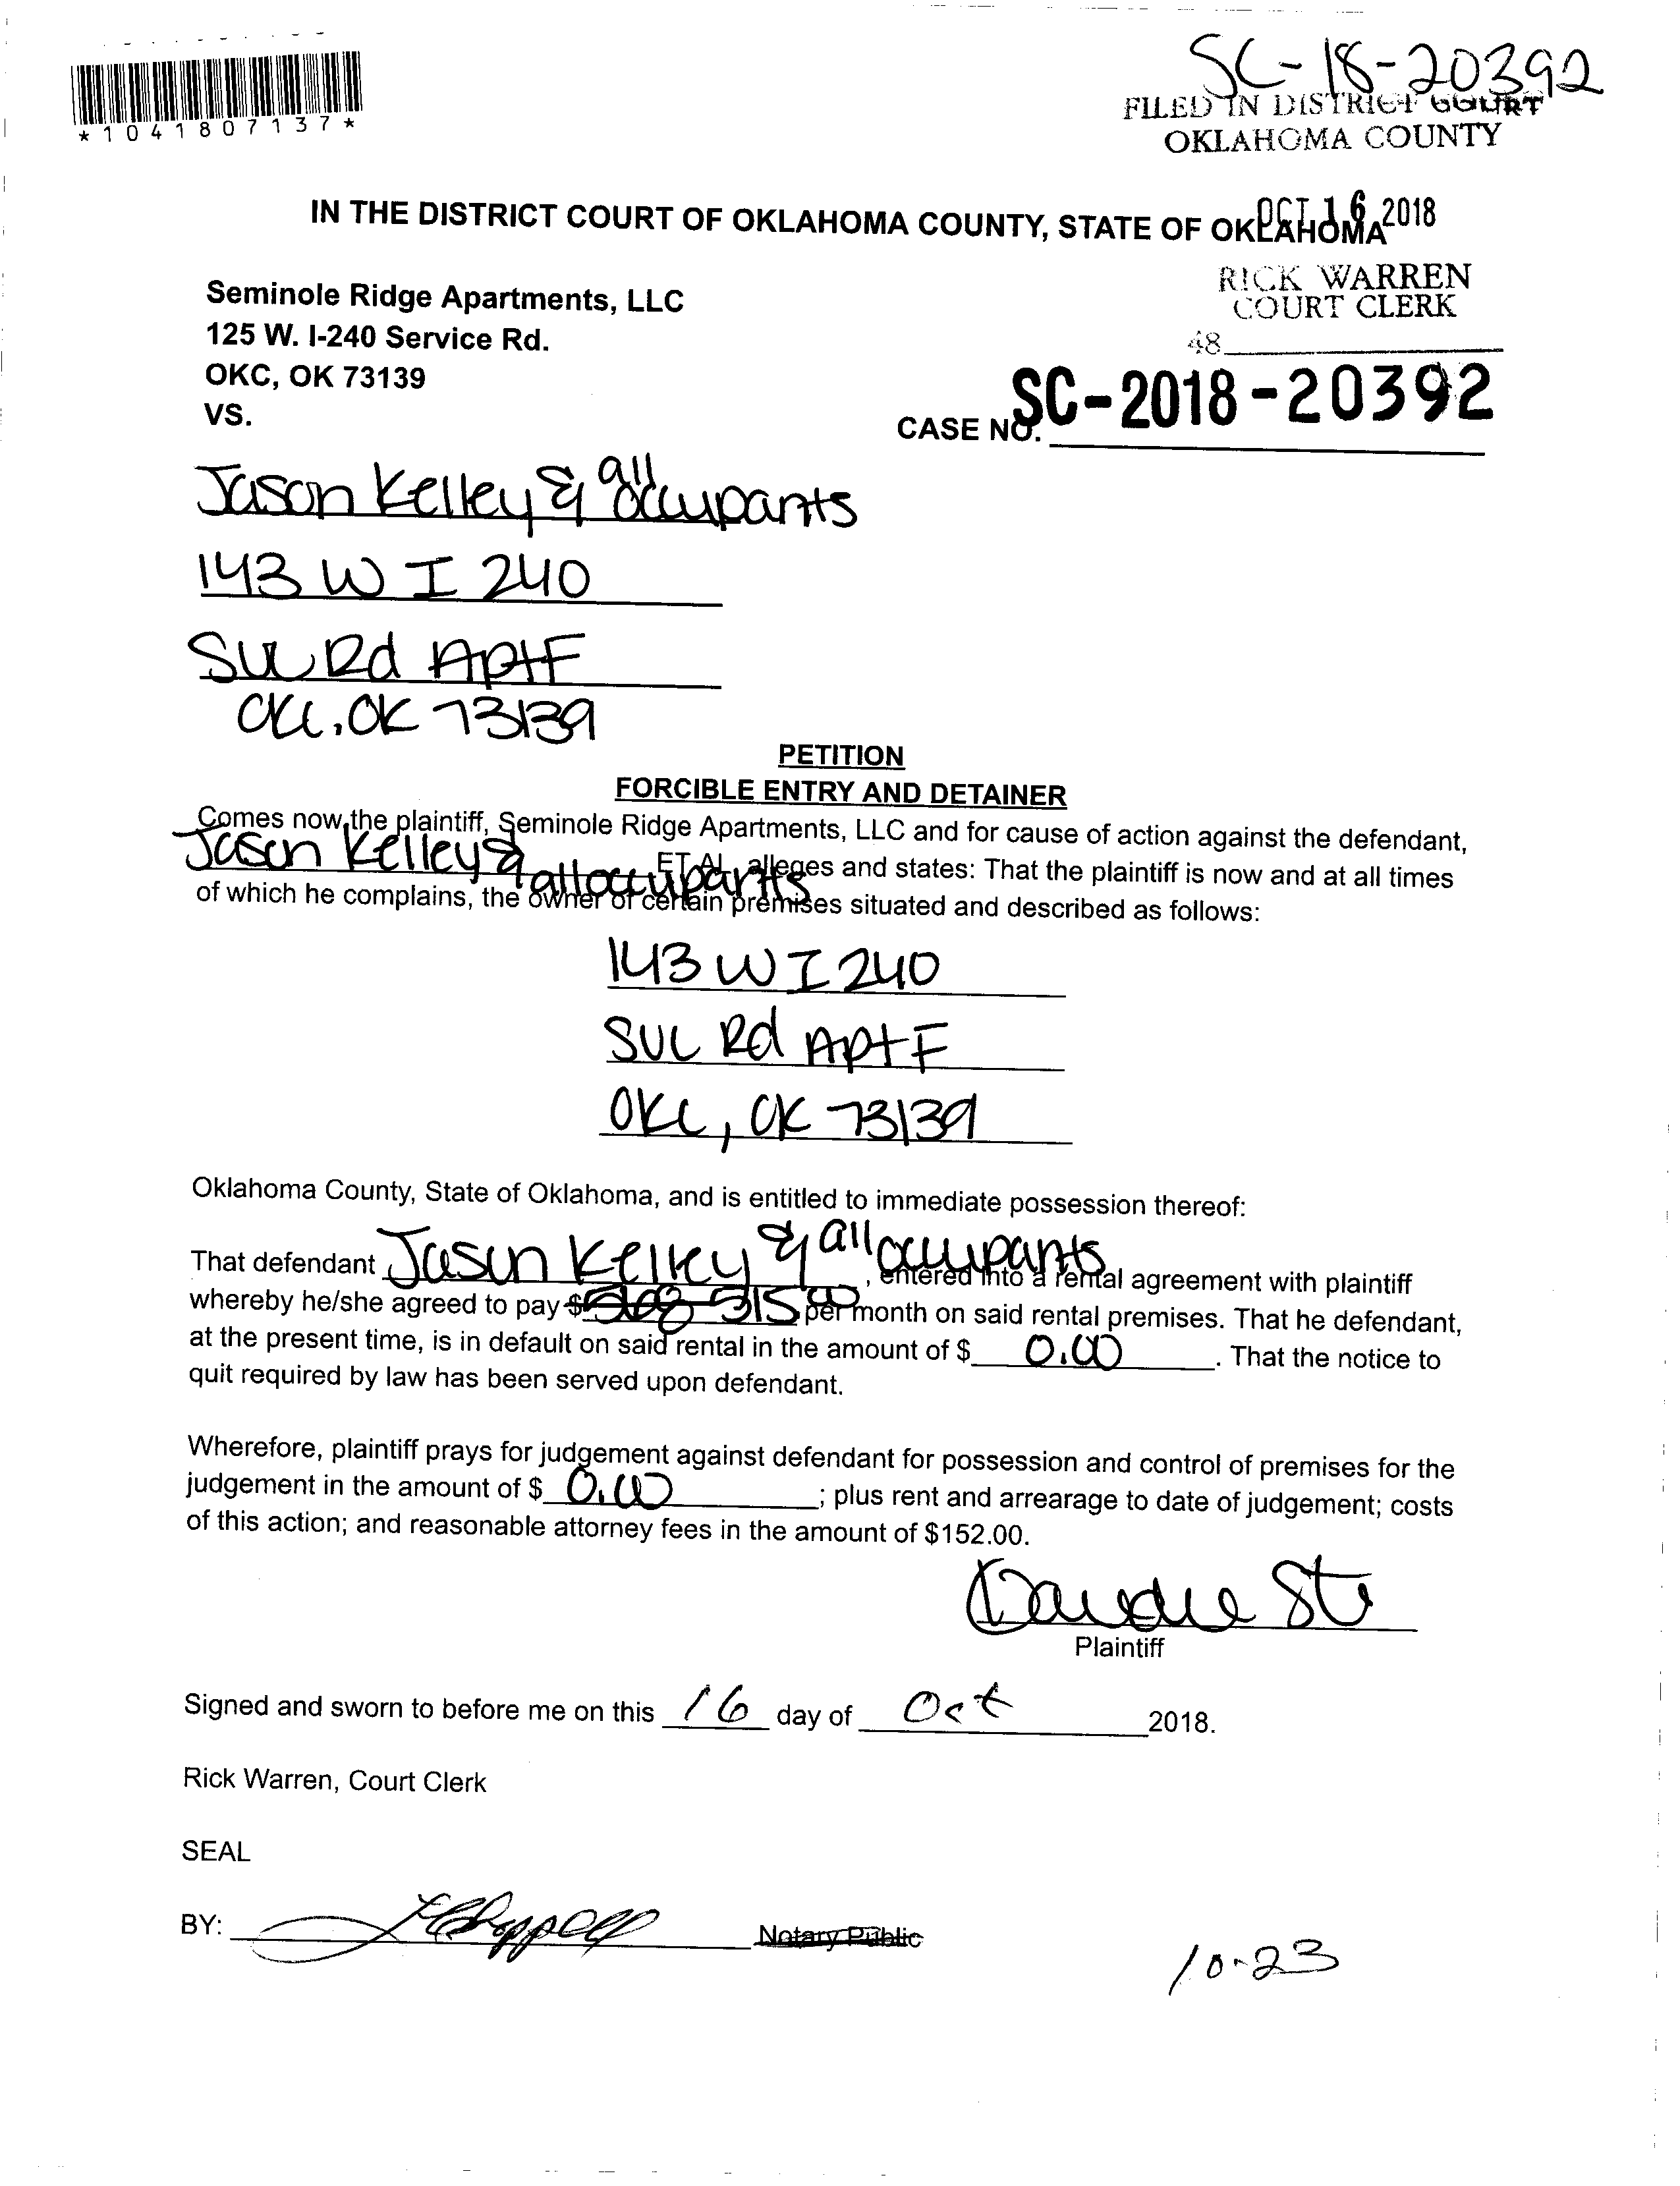 SC-18-20392
*1041807137*
FILED IN DISTRICT COURT
OKLAHOMA COUNTY
OCT 16 2018
IN THE DISTRICT COURT OF OKLAHOMA COUNTY, STATE OF OKLAHOMA
RICK WARREN
COURT CLERK
48
Seminole Ridge Apartments, LLC
125 W. I-240 Service Rd.
OKC, OK 73139
VS.
CASE NO. SC-2018-20392
Jason Kelley & all occupants
143 W I 240
SVC Rd Apt F
OKC, OK 73139
PETITION
FORCIBLE ENTRY AND DETAINER
Comes now, the plaintiff, Seminole Ridge Apartments, LLC and for cause of action against the defendant,
Jason Kelley & all occupants ET AL, alleges and states: That the plaintiff is now and at all times
of which he complains, the owner of certain premises situated and described as follows:
143 W I 240
SVC Rd Apt F
OKC, OK 73139
Oklahoma County, State of Oklahoma, and is entitled to immediate possession thereof:
That defendant Jason Kelley & all occupants, entered into a rental agreement with plaintiff
whereby he/she agreed to pay $ 515.00 per month on said rental premises. That he defendant,
at the present time, is in default on said rental in the amount of $ 0.00. That the notice to
quit required by law has been served upon defendant.
Wherefore, plaintiff prays for judgement against defendant for possession and control of premises for the
judgement in the amount of $ 0.00; plus rent and arrearage to date of judgement; costs
of this action; and reasonable attorney fees in the amount of $152.00.
Plaintiff
Signed and sworn to before me on this 16 day of Oct 2018.
Rick Warren, Court Clerk
SEAL
BY: Notary Public
10-23